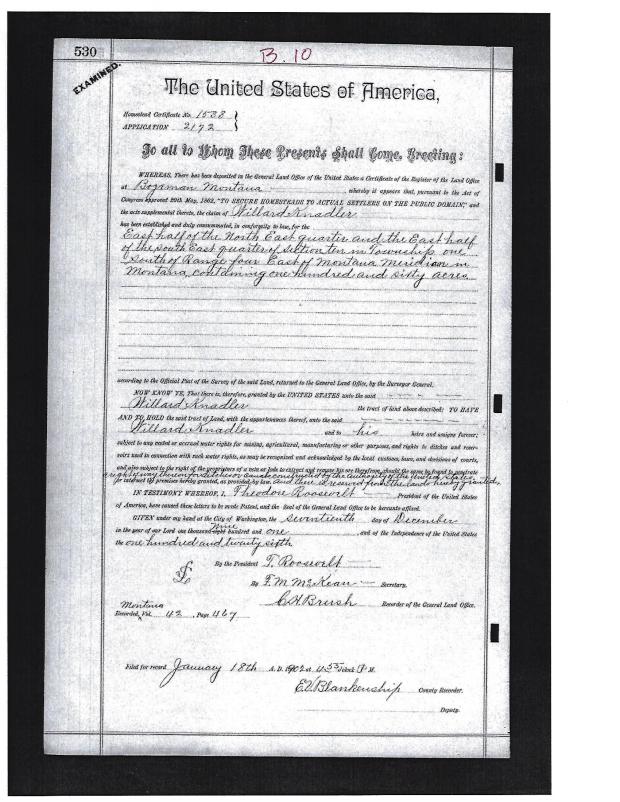 530
B. 10
EXAMINED.
The United States of America,
Homestead Certificate No. 1538
APPLICATION 2192
To all to Whom These Presents Shall Come, Greeting:
WHEREAS, There has been deposited in the General Land Office of the United States a Certificate of the Register of the Land Office
at Bozeman Montana, whereby it appears that, pursuant to the Act of
Congress approved 20th May, 1862, "TO SECURE HOMESTEADS TO ACTUAL SETTLERS ON THE PUBLIC DOMAIN," and
the acts supplemental thereto, the claim of Willard Knadler
has been established and duly consummated, in conformity to law, for the
East half of the North East quarter and the East half
of the South East quarter of Section ten in Township one
South of Range four East of Montana Meridian in
Montana, containing one hundred and sixty acres
according to the Official Plat of the Survey of the said Land, returned to the General Land Office, by the Surveyor General.
NOW KNOW YE, That there is, therefore, granted by the UNITED STATES unto the said
Willard Knadler the tract of land above described; TO HAVE
AND TO HOLD the said tract of Land, with the appurtenances thereof, unto the said
Willard Knadler and to his heirs and assigns forever;
subject to any vested or accrued water rights for mining, agricultural, manufacturing or other purposes, and rights to ditches and reser-
voirs used in connection with such water rights, as may be recognized and acknowledged by the local customs, laws, and decisions of courts,
and also subject to the right of the proprietors of a vein or lode to extract and remove his ore therefrom, should the same be found to penetrate
a right of way thereon for ditches or canals constructed by the authority of the United States
or intersect the premises hereby granted, as provided by law. And there is reserved from the lands hereby granted,
IN TESTIMONY WHEREOF, I, Theodore Roosevelt, President of the United States
of America, have caused these letters to be made Patent, and the Seal of the General Land Office to be hereunto affixed.
GIVEN under my hand at the City of Washington, the seventeenth day of December
in the year of our Lord one thousand nine hundred and one, and of the Independence of the United States
the one hundred and twenty sixth
By the President T. Roosevelt
By F. M. McKean Secretary.
C. H. Brush Recorder of the General Land Office.
Montana
Recorded, Vol. 42, Page 467
Filed for record January 18th A. D. 1902 at 4 55 o'clock P. M.
E. V. Blankenship County Recorder.
Deputy.